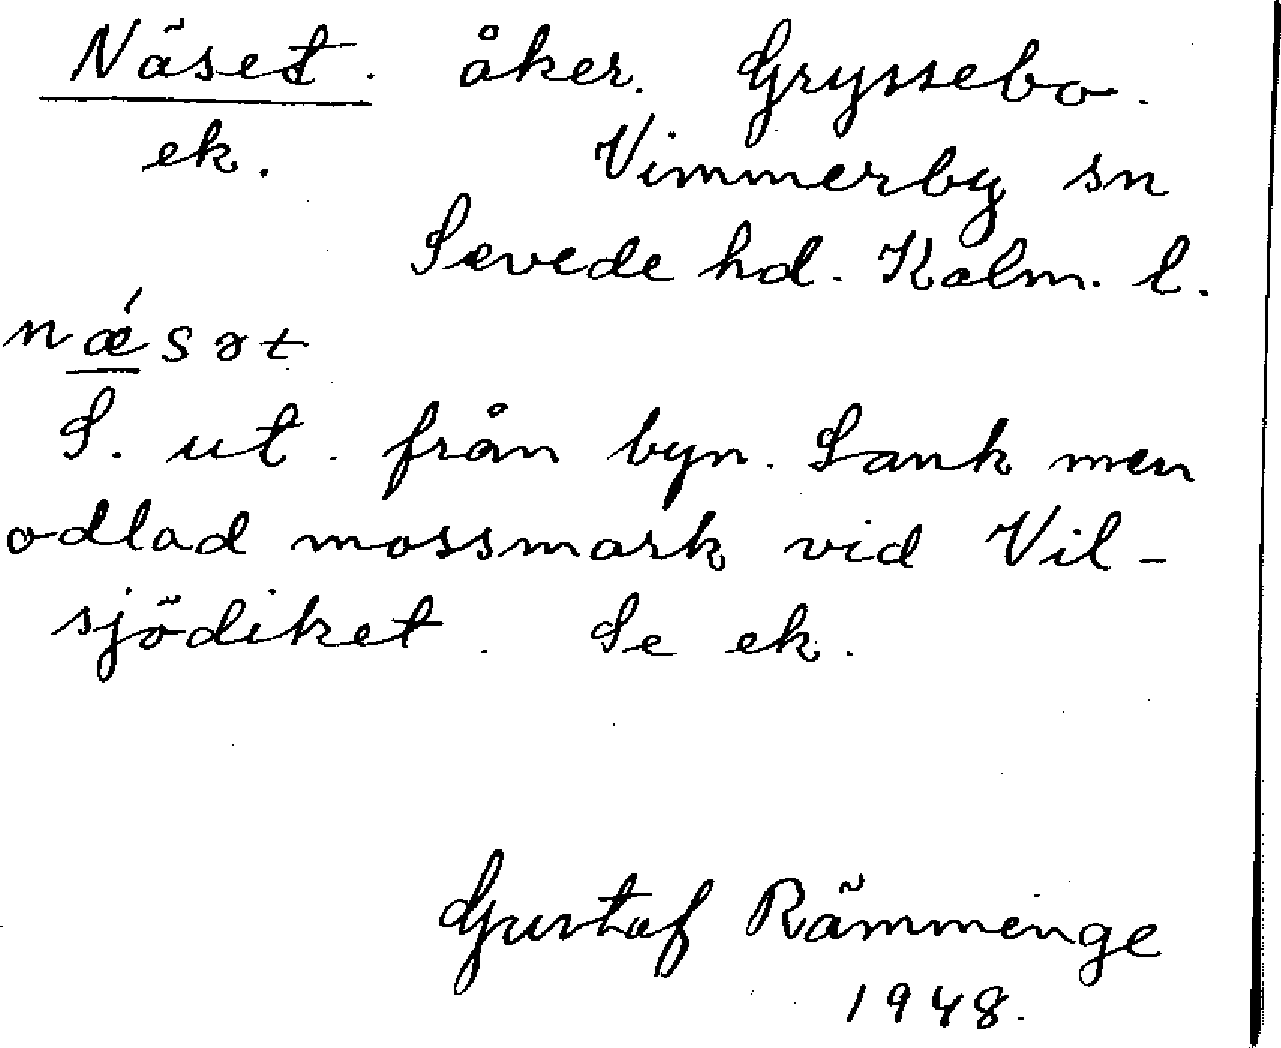 Näset. åker. Gryssebo.
ek. Vimmerby sn
Sevede hd. Kalm. l.
nǽsət
S. ut. från byn. Sank men
odlad mossmark vid Vil-
sjödiket. Se ek.
Gustaf Rämminge
1948.